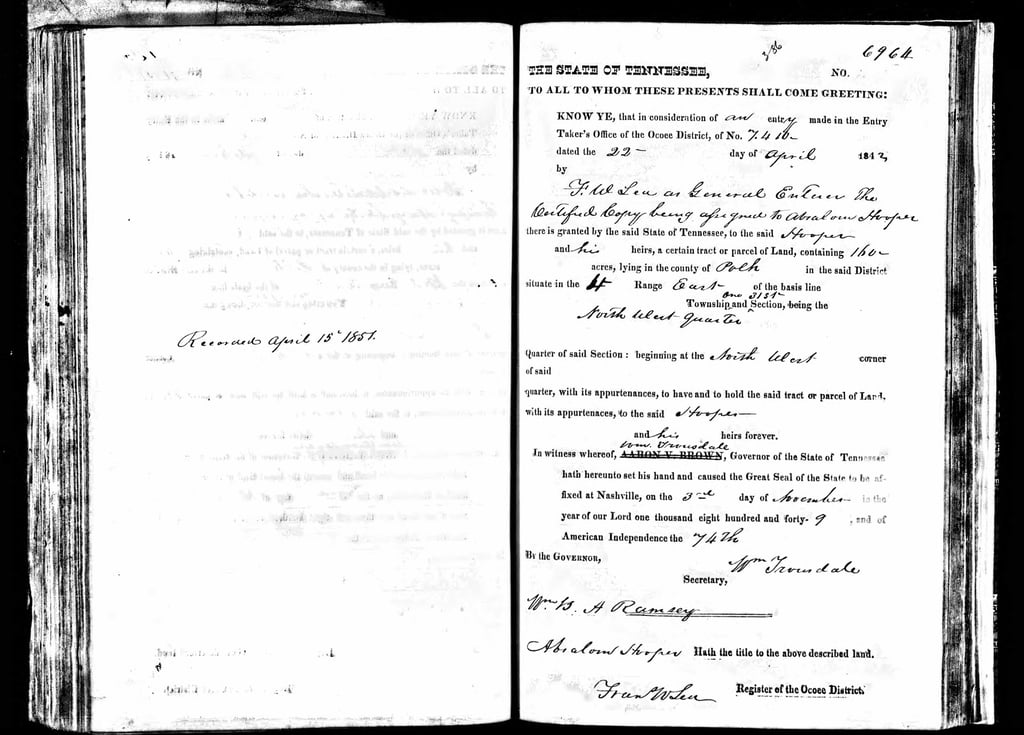 Recorded April 15th 1851.
386
6964
THE STATE OF TENNESSEE, NO.
TO ALL TO WHOM THESE PRESENTS SHALL COME GREETING:
KNOW YE, that in consideration of an entry made in the Entry
Taker's Office of the Ocoee District, of No. 7410-
dated the 22- day of April 1842,
by
F. W Lea as General Enterer The
Certified Copy being assigned to Absalom Hooper
there is granted by the said State of Tennessee, to the said Hooper
and his heirs, a certain tract or parcel of Land, containing 160-
acres, lying in the county of Polk in the said District
situate in the 4 Range East of the basis line
one 31st
Township and Section, being the
North West Quarter
Quarter of said Section: beginning at the North West corner
of said
quarter, with its appurtenances, to have and to hold the said tract or parcel of Land,
with its appurtenaces, to the said Hooper
and his heirs forever.
Wm. Trousdale
In witness whereof, AARON V. BROWN, Governor of the State of Tennessee
hath hereunto set his hand and caused the Great Seal of the State to be af-
fixed at Nashville, on the 3rd day of November in the
year of our Lord one thousand eight hundred and forty-9, and of
American Independence the 74th
By the GOVERNOR,
Wm Trousdale
Secretary,
Wm B. A Ramsey
Absalom Hooper Hath the title to the above described land.
Fran W Lea Register of the Ocoee District.